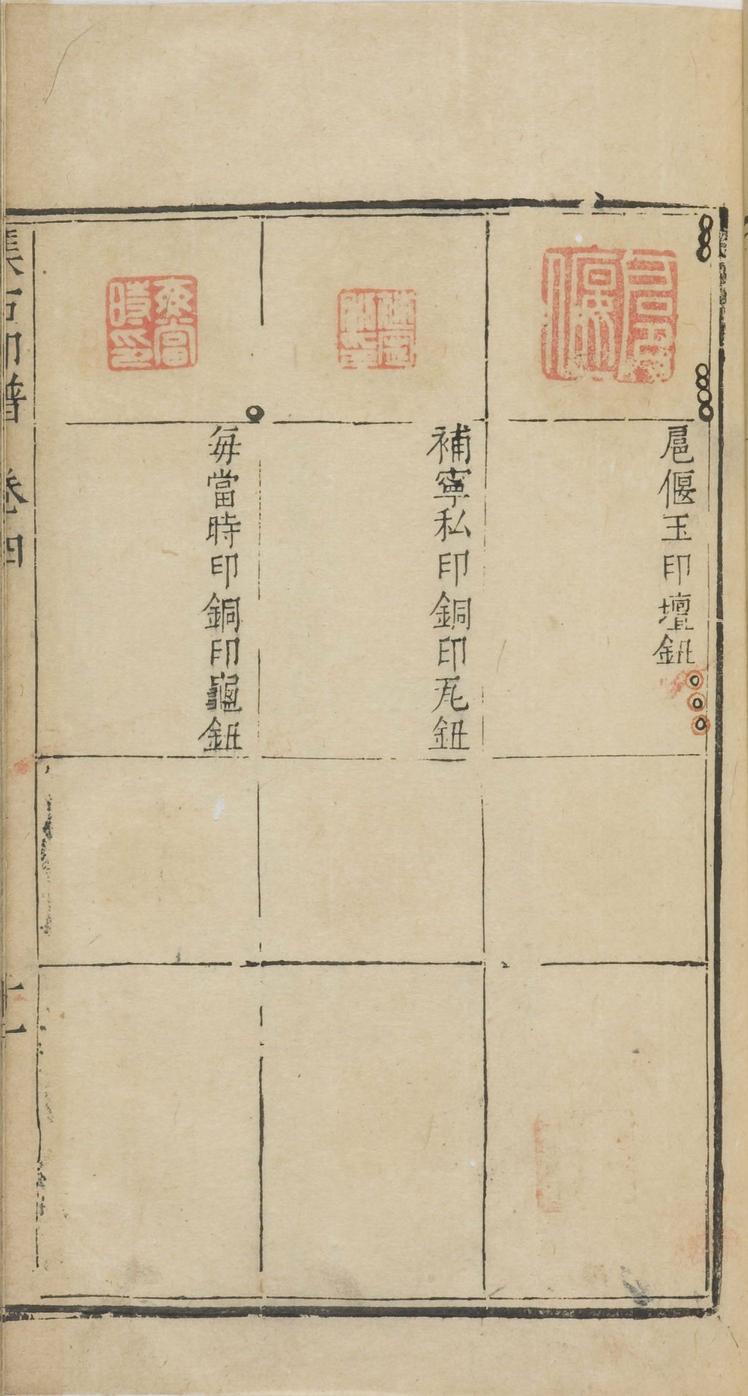 扈偃玉印壇鈕
補寧私印銅印瓦鈕
每當時印銅印龜鈕
集古印譜 卷四